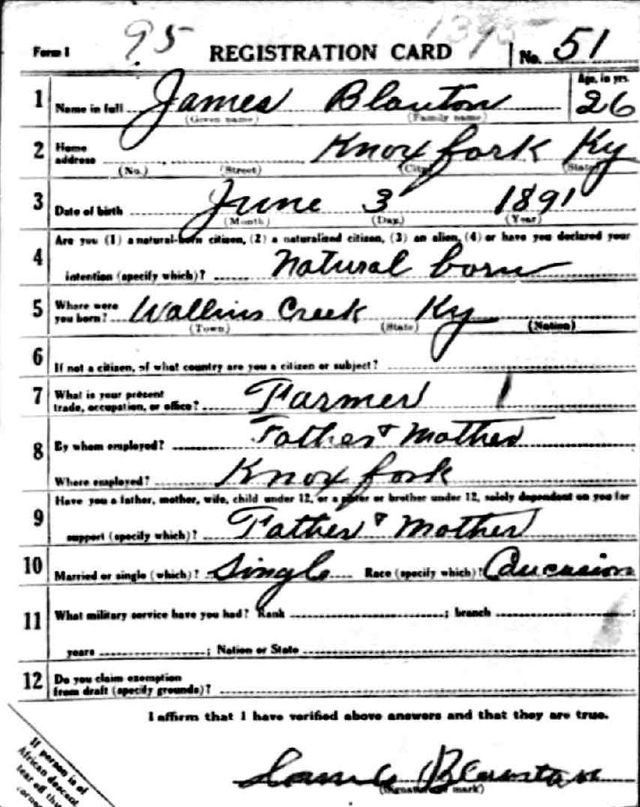 Form 1 95 REGISTRATION CARD No. 51
1 Name in full James Blanton Age, in yrs. 26
(Given name) (Family name)
2 Home address Knox fork Ky
(No.) (Street) (City) (State)
3 Date of birth June 3 1891
(Month) (Day) (Year)
4 Are you (1) a natural-born citizen, (2) a naturalized citizen, (3) an alien, (4) or have you declared your
intention (specify which)? Natural born
5 Where were you born? Wallins Creek Ky
(Town) (State) (Nation)
6 If not a citizen, of what country are you a citizen or subject?
7 What is your present trade, occupation, or office? Farmer
8 By whom employed? Father & Mother
Where employed? Knox fork
9 Have you a father, mother, wife, child under 12, or a sister or brother under 12, solely dependent on you for
support (specify which)? Father & Mother
10 Married or single (which)? Single Race (specify which)? Caucasion
11 What military service have you had? Rank ; branch ;
years ; Nation or State
12 Do you claim exemption from draft (specify grounds)?
I affirm that I have verified above answers and that they are true.
James Blanton
(Signature or mark)
If person is of
African descent
tear off this
corner